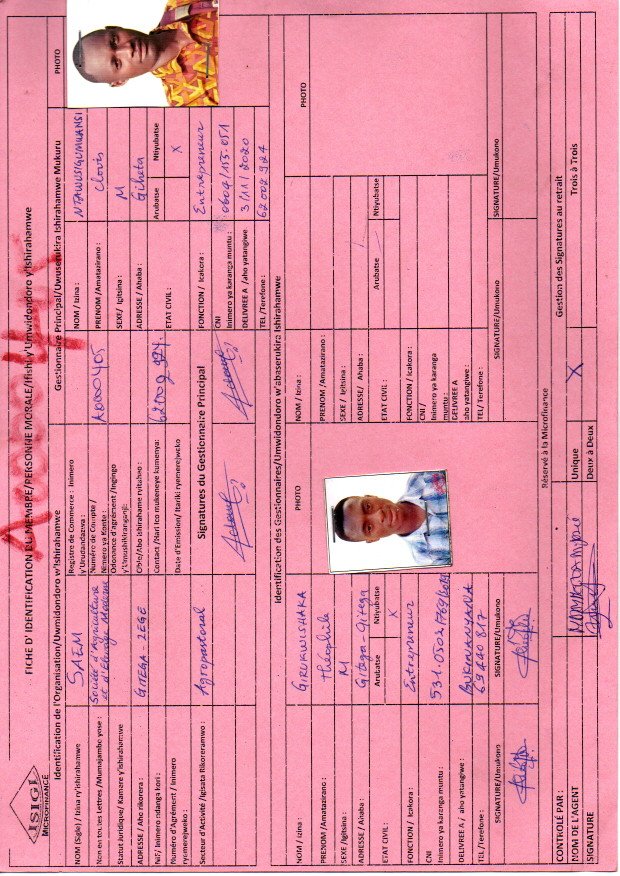 ISIGI
MICROFINANCE
FICHE D' IDENTIFICATION DU MEMBRE/PERSONNE MORALE/Ifishi y'Umwidondoro y'Ishirahamwe
Identification de l'Organisation/Uwmidondoro w'Ishirahamwe
NOM (Sigle) / Izina ry'ishirahamwe
SAEM
Non en toutes Lettres /Mumajambo yose :
Société d'Agriculture
et d'Elevage Moderne
Statut Juridique/ Kamere y'ishirahamwe
ADRESSE / Aho rikorera :
GITEGA ZEGE
Nif/ Inimero ndanga kori :
Numéro d'Agrément / Inimero
ryemerejweko :
Secteur d'Activité /Igisata Rikoreramwo :
Agropastoral
Registre de Commerce : Inimero
y'Urudandanza :
Numéro de Compte /
Nimero ya Konte :
A0000405
Odonance d'agrément /Ingingo
y'Umushikiranganji:
Cible/Abo ishirahame rvitaho :
Contact /Nari ico mukeneye kumenya:
62002 924
Date d'Emission/ Itariki ryemerejweko
Signatures du Gestionnaire Principal
Gestionnaire Principal/Uwuserukira Ishirahamwe Mukuru
PHOTO
NOM / Izina :
NTAWUSIGUMUANSI
PRENOM /Amatazirano :
Clovis
SEXE/ Igitsina :
M
ADRESSE / Ahaba :
Giheta
ETAT CIVIL :
Arubatse
Ntiyubatse
X
FONCTION / Icakora :
Entrepreneur
CNI
Inimero ya karanga muntu :
0604/155.051
DELIVREE A /aho yatangiwe
3/11/2020
TEL /Terefone :
62002 924
Identification des Gestionnaires/Umwidondoro w'abaserukira Ishirahamwe
NOM / Izina :
GIRUKWISHAKA
PHOTO
PRENOM /Amatazirano :
Théophile
SEXE /Igitsina :
M
ADRESSE / Ahaba :
Gitega-Gitega
ETAT CIVIL :
Arubatse
Ntiyubatse
X
FONCTION / Icakora :
Entrepreneur
CNI
Inimero ya karanga muntu :
DELIVREE A / aho yatangiwe :
BUKINANYANA
TEL /Terefone :
69440 817
SIGNATURE/Umukono
SIGNATURE/Umukono
NOM / Izina :
PHOTO
PRENOM /Amatazirano :
SEXE / Igitsina :
ADRESSE / Ahaba :
ETAT CIVIL :
Arubatse
Ntiyubatse
FONCTION / Icakora :
CNI /
Inimero ya karanga
muntu :
DELIVREE A
aho yatangiwe :
TEL/ Terefone :
SIGNATURE/Umukono
SIGNATURE/Umukono
Réservé à la Microfinance
CONTROLÉ PAR :
Gestion des Signatures au retrait
NOM DE L'AGENT
Unique
X
Trois à Trois
SIGNATURE
Deux à Deux